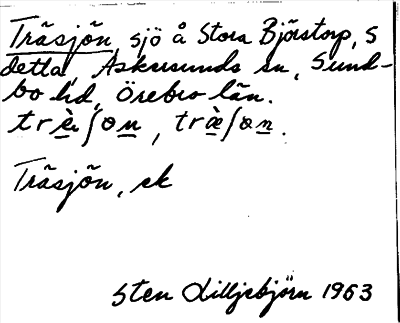 Träsjön, sjö å Stora Björstorp, S
detta, Askersunds sn, Sund-
bo hd, Örebro län.
trèʃon, træ̀ʃon.
Träsjön, ek
Sten Lilljebjörn 1963